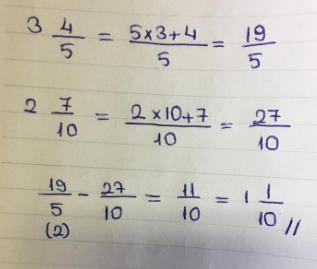 3 4/5 = 5×3+4/5 = 19/5
2 7/10 = 2×10+7/10 = 27/10
19/5 - 27/10 = 11/10 = 1 1/10 //
(2)